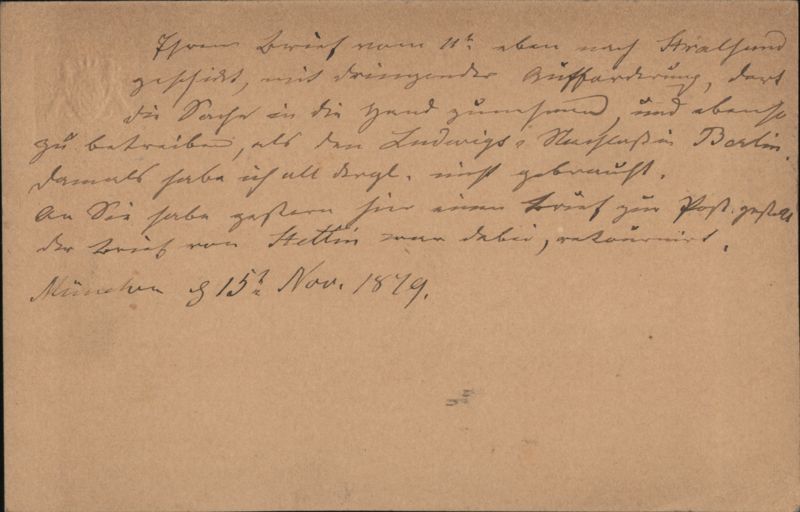 Ihren Brief vom 11t. eben nach Stralsund
geschickt, mit dringender Aufforderung, dort
die Sache in die Hand zunehmen, und ebenso
zu betreiben, als den Ludwigs's Nachlaß in Berlin.
Damals habe ich all dergl. nicht gebraucht.
An Sie habe gestern hier einen Brief zur Post gestellt
der Brief von Stettin war dabei, retournirt.
München d 15t Nov. 1879.